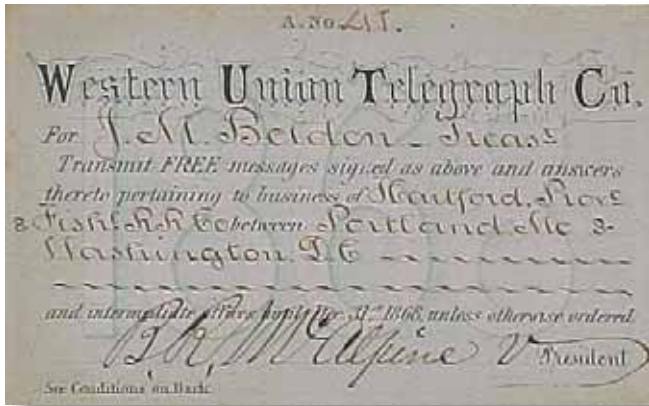 A. No. 411.
Western Union Telegraph Co.
For J. M. Beldon - Treasr
Transmit FREE messages signed as above and answers
thereto pertaining to business of Hartford, Prove
& Fishl R. R. Co between Portland Me &
Washington D.C
and intermediate offices, until Dec. 31st 1866, unless otherwise ordered.
V President
See Conditions on Back.